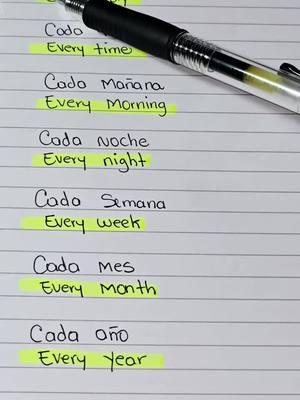 Cada
Every time
Cada Mañana
Every Morning
Cada noche
Every night
Cada Semana
Every week
Cada mes
Every Month
Cada año
Every year